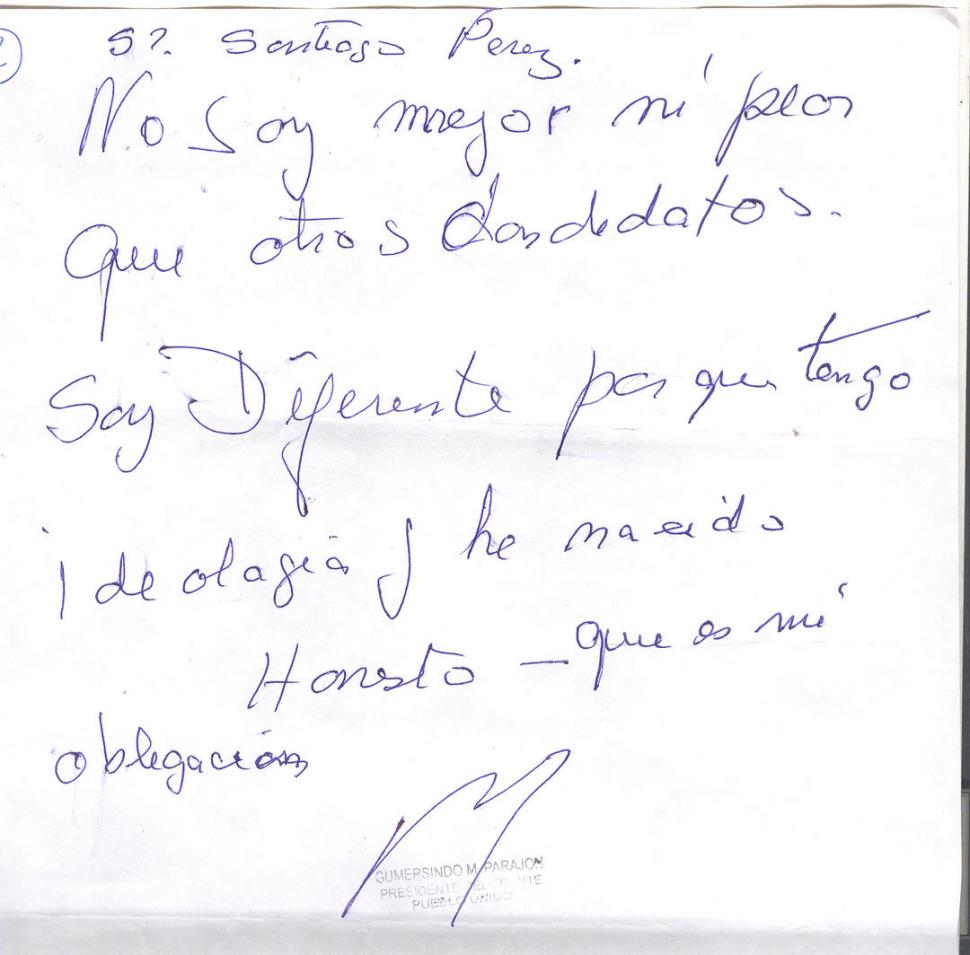 Sr. Santiago Perez.
No Soy mejor ni peor
que otros Candidatos.
Soy Diferente por que tengo
ideologia y he nacido
Honesto - que es mi
obligación
GUMERSINDO M. PARAJON
PRESIDENTE DEL FRENTE
PUEBLO UNIDO